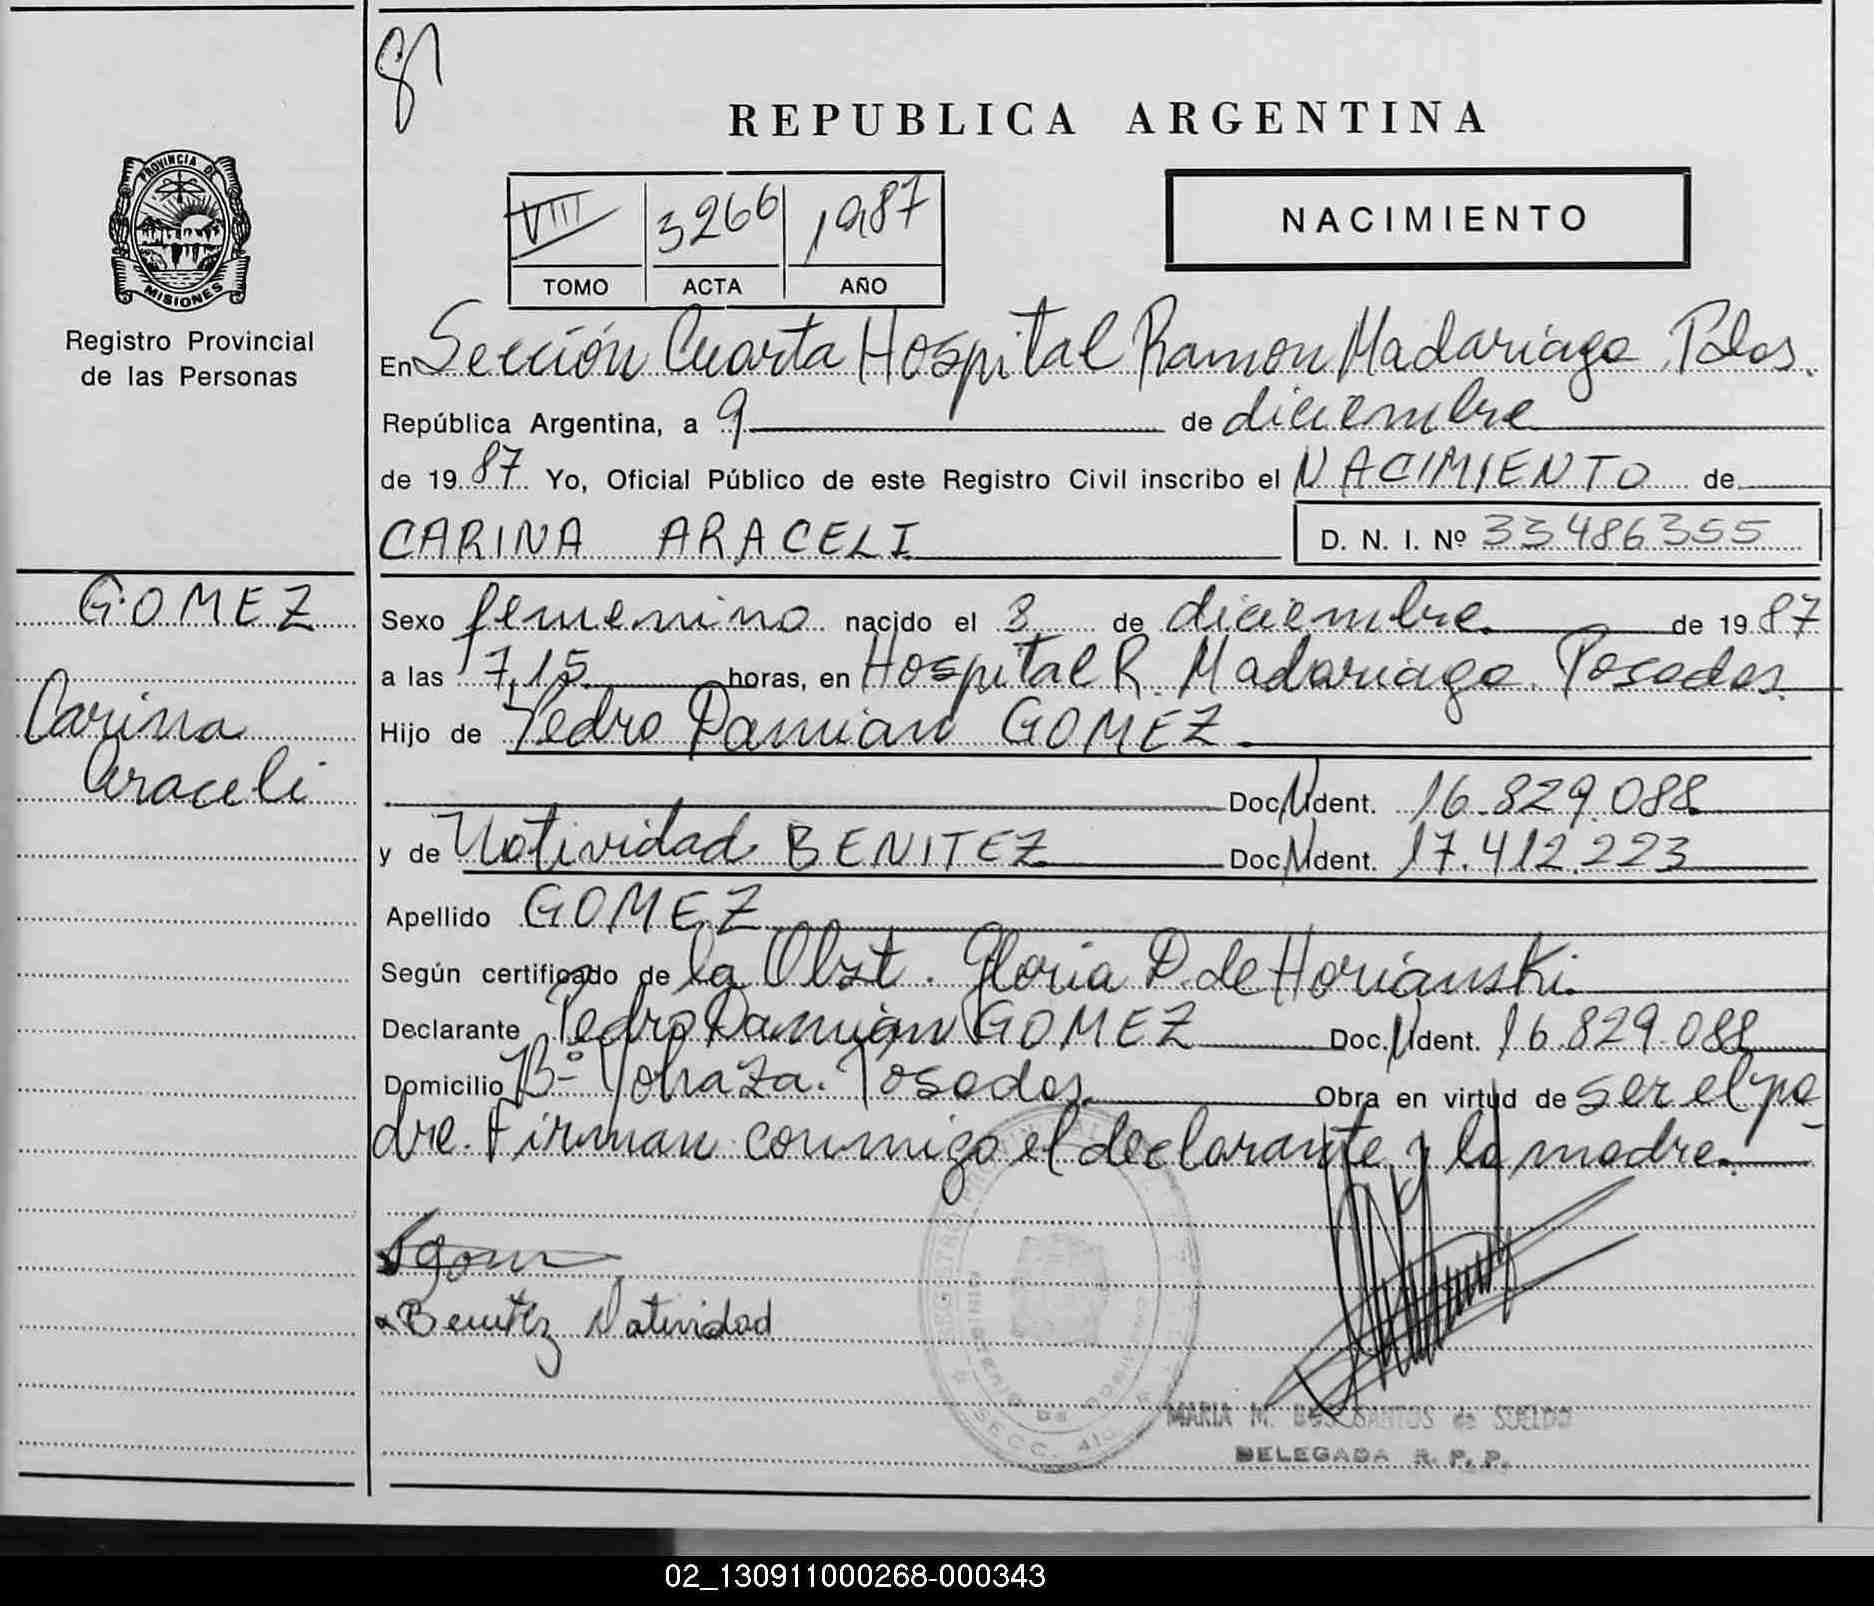 81
REPUBLICA ARGENTINA
PROVINCIA DE
MISIONES
Registro Provincial
de las Personas
VIII 3266 1987
TOMO ACTA AÑO
NACIMIENTO
En Sección Cuarta Hospital Ramon Madariaga. Pdas.
República Argentina, a 9 de diciembre
de 1987 Yo, Oficial Público de este Registro Civil inscribo el NACIMIENTO de
CARINA ARACELI D. N. I. Nº 33486355
GOMEZ
Carina
Araceli
Sexo femenino nacido el 8 de diciembre de 1987
a las 17,15 horas, en Hospital R. Madariaga. Posadas.
Hijo de Pedro Damian GOMEZ.
Doc. Ident. 16.829.088
y de Natividad BENITEZ Doc. Ident. 17.412.223
Apellido GOMEZ
Según certificado de la Obst. Gloria P. de Horianski.
Declarante Pedro Damián GOMEZ Doc. Ident. 16.829.088
Domicilio Bº Posadas. Obra en virtud de ser el pa-
dre. Firman conmigo el declarante y la madre.
Benitez Natividad
MARIA M. DOS SANTOS de SUELDO
DELEGADA R. P. P.
02_130911000268-000343